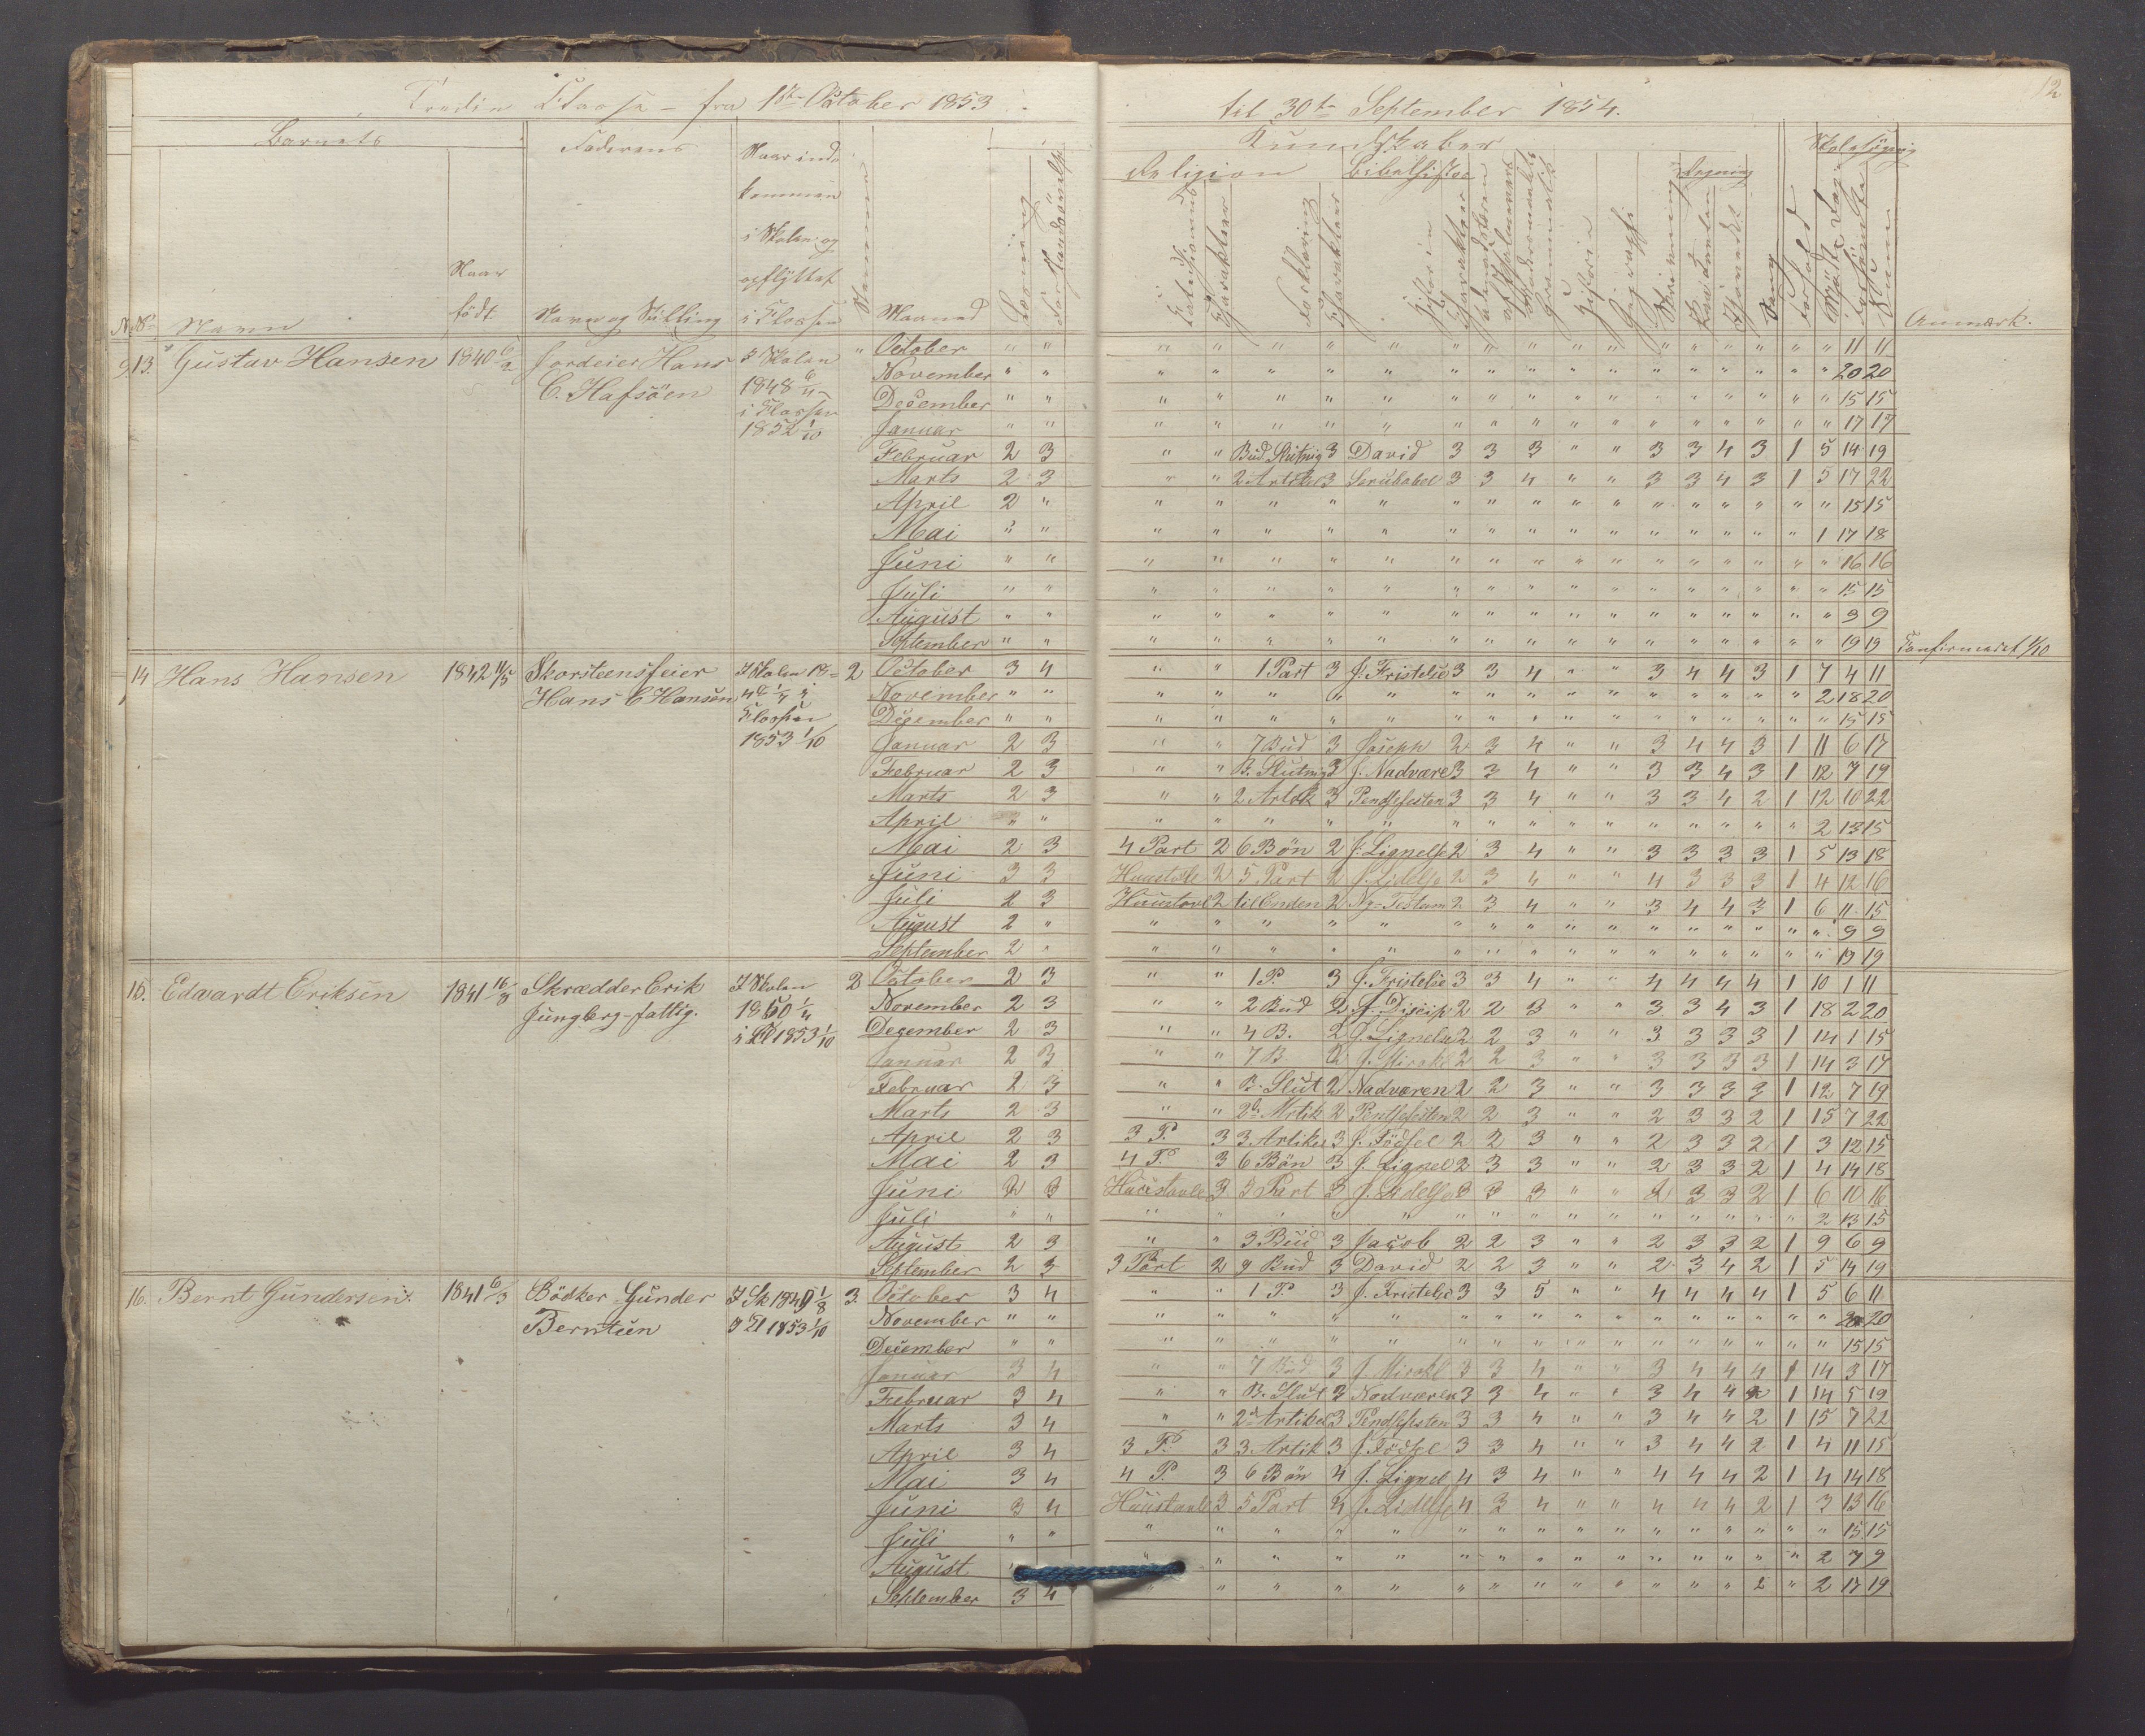 Tredie Classe – fra 1ste October 1853
til 30te September 1854.
12
Barnets
Faderens
Kundskaber
Religion
Bibelhistorie
Regning
Skolesøgning
No Navn
Naar født
Navn og Stilling
Naar indkommen i Skolen og opflyttet i Classen
Nemme
Maaned
Catechismus Charakteer Forklaring Charakteer Historie Charakteer
Grammatik Historie Geographi Skrivning
Sang Forhold
Anmærk.
13. Gustav Hansen 1840 Jordeier Hans I Skolen " October " " " " " " " " " " " " " " " " " " " 11 11
C. Hafsöen 1848 November " " " " " " " " " " " " " " " " " " " 20 20
i Classen December " " " " " " " " " " " " " " " " " " " 15 15
1852 1/10 Januar " " " " " " " " " " " " " " " " " " " 17 17
Februar 2 3 " " Bud Slutnig 3 David 3 3 3 " " 3 3 4 3 1 5 14 19
Marts 2 3 " " 2 Artikel 3 Serubabel 3 3 4 " " 3 3 4 3 1 5 17 22
April 2 " " " " " " " " " " " " " " " " " " 15 15
Mai " " " " " " " " " " " " " " " " " " 1 17 18
Juni " " " " " " " " " " " " " " " " " " " 16 16
Juli " " " " " " " " " " " " " " " " " " " 15 15
August " " " " " " " " " " " " " " " " " " " 9 9
September " " " " " " " " " " " " " " " " " " " 19 19 Confirmeret 1/10
14 Hans Hansen 1842 11/5 Skorsteensfeier I Skolen 18= 2 October 3 4 " " 1 Part 3 J. Fristelse 3 3 4 " " 3 4 4 3 1 7 4 11
Hans C Hansen November " " " " " " " " " " " " " " " " " " 2 18 20
Classen December " " " " " " " " " " " " " " " " " " " 15 15
1853 1/10 Januar 2 3 " " 7 Bud 3 Joseph 2 3 4 " " 3 4 4 3 1 11 6 17
Februar 2 3 " " B. Slutnig 3 J. Nadvære 3 3 4 " " 3 3 4 3 1 12 7 19
Marts 2 3 " " 2 Artik 3 Pendsefesten 3 3 4 " " 3 3 4 2 1 12 10 22
April " " " " " " " " " " " " " " " " " " 2 13 15
Mai 2 3 4 Part 2 6 Bön 2 J. Lignelse 2 3 4 " " 3 3 3 3 1 5 13 18
Juni 3 3 Huustavle 2 5 Part 2 J. Lidelse 2 3 4 " " 4 3 3 3 1 4 12 16
Juli 2 3 Huustavle 2 til Enden 2 Ny-Testam 2 3 4 " " 3 4 4 3 1 6 11 15
August 2 " " " " " " " " " " " " " " " " " " 9 9
September 2 " " " " " " " " " " " " " " " " " " 19 19
15. Edvardt Eriksen 1841 16/8 Skrædder Erik I Skolen 2 October 2 3 " " 1 P. 3 J. Fristelse 3 3 4 " " 4 4 4 4 1 10 1 11
Jungberg-fattig. 1850 November 2 3 " " 2 Bud 2 J. Discip 2 2 3 " " 3 3 4 3 1 18 2 20
i Cl 1853 1/10 December 2 3 " " 4 B. 2 J. Lignelse 2 2 3 " " 3 3 3 3 1 14 1 15
Januar 2 3 " " 7 B 2 J. Mirakl 2 2 3 " " 3 3 3 3 1 14 3 17
Februar 2 3 " " B. Slut 2 Nadværen 2 2 3 " " 3 3 3 3 1 12 7 19
Marts 2 3 " " 2de Artik 2 Pendsefesten 2 2 3 " " 2 3 3 2 1 15 7 22
April 2 3 3 P. 3 3 Artikel 3 J. Födsel 2 2 3 " " 2 3 3 2 1 3 12 15
Mai 2 3 4 P. 3 6 Bön 3 J. Lignel 2 3 3 " " 2 3 3 2 1 4 14 18
Juni 2 3 Huustavle 3 5 Part 3 J. Lidelse 3 3 3 " " 2 3 3 2 1 6 10 16
Juli " " " " " " " " " " " " " " " " " " 2 13 15
August 2 3 " " 3 Bud 3 Jacob 2 2 3 " " 2 3 3 2 1 9 6 9
September 2 3 3 Part 2 9 Bud 3 David 2 2 3 " " 2 3 4 2 1 5 14 19
16. Bernt Gundersen. 1841 6/3 Bödker Gunder I Sk 1849 1/8 3. October 3 4 " " 1 P. 3 J. Fristelse 3 3 5 " " 4 4 4 4 1 5 6 11
Berntsen I Cl 1853 1/10 November " " " " " " " " " " " " " " " " " " " 20 20
December " " " " " " " " " " " " " " " " " " " 15 15
Januar 3 4 " " 7 Bud 3 J. Mirakl 3 3 4 " " 3 4 4 4 1 14 3 17
Februar 3 4 " " B. Slut 3 Nadværen 3 3 4 " " 3 4 4 2 1 14 5 19
Marts 3 4 " " 2 Artikel 3 Pendsefesten 3 3 4 " " 3 4 4 2 1 15 7 22
April 3 4 3 P. 3 3 Artik 3 J. Födsel 3 3 4 " " 3 4 4 2 1 4 11 15
Mai 3 4 4 P. 3 6 Bön 4 J. Lignel 4 3 4 " " 4 4 4 2 1 4 14 18
Juni 3 4 Huustavle 3 5 Part 4 J. Lidelse 4 3 4 " " 4 4 4 2 1 3 13 16
Juli " " " " " " " " " " " " " " " " " " " 15 15
August " " " " " " " " " " " " " " " " " 2 7 9
September 3 4 " " " " " " " " " " " " " " 2 " 2 17 19